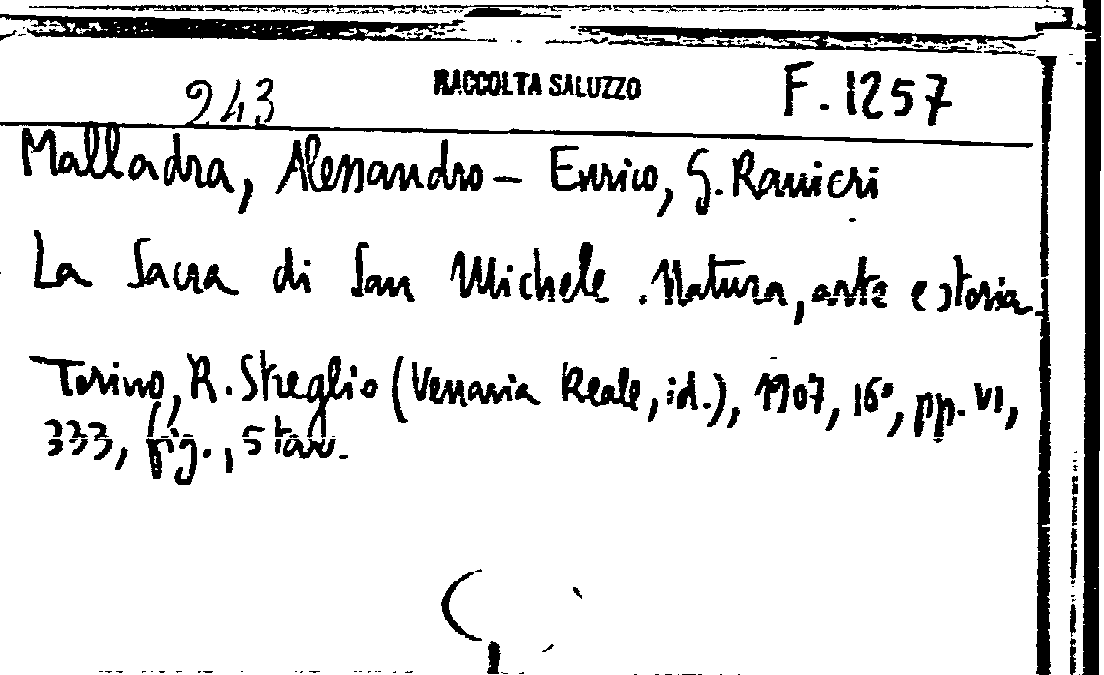 243 RACCOLTA SALUZZO F. 1257
Malladra, Alessandro - Enrico, G. Ranieri
La Sacra di San Michele. Natura, arte e storia.
Torino, R. Streglio (Venaria Reale, id.), 1907, 16°, pp. VI,
333, fig., 5 tav.